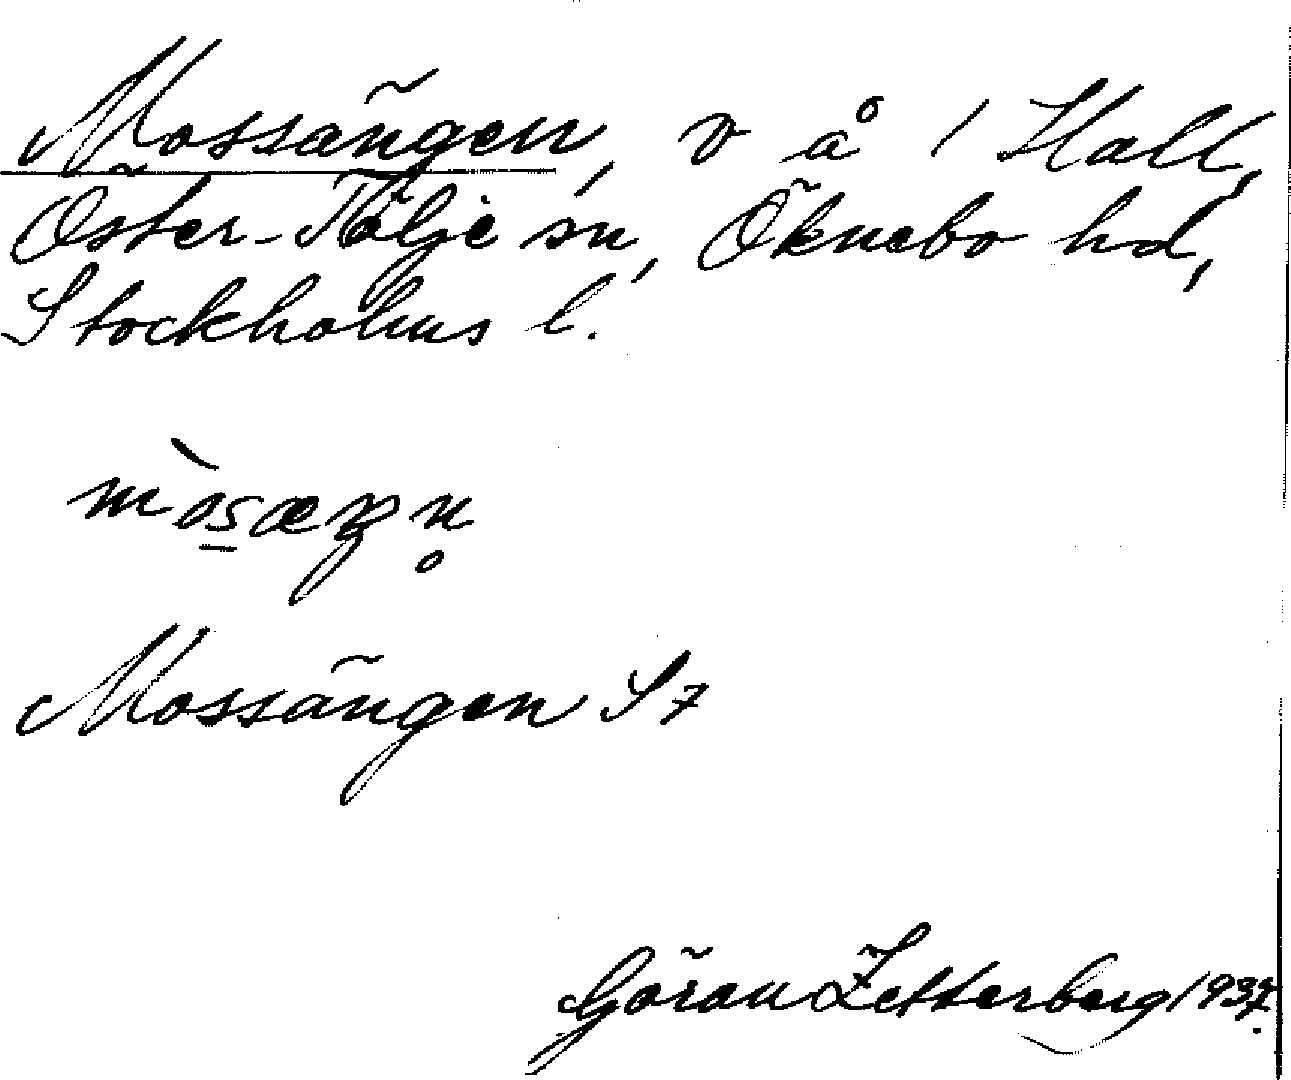 Mossängen, v å / Hall,
Öster-Tälje sn, Öknebo hd,
Stockholms l.
mòsæŋn̥
Mossängen S7
Göran Zetterberg 1937.